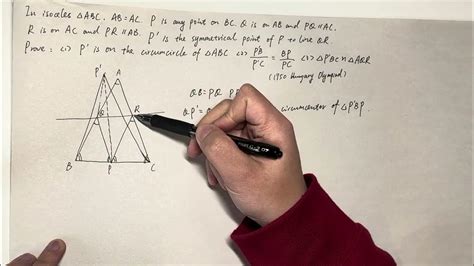 In isoceles △ABC. AB=AC. P is any point on BC. Q is on AB and PQ∥AC.
R is on AC and PR∥AB. P' is the symmetrical point of P to line QR.
Prove: (1) P' is on the circumcircle of △ABC (2) P'B/P'C = BP/PC (3) △P'BC ∽ △AQR
(1950 Hungary Olympiad)
P'
A
QB=PQ
Q
R
QP'=
circumcenter of △P'BP.
B
P
C